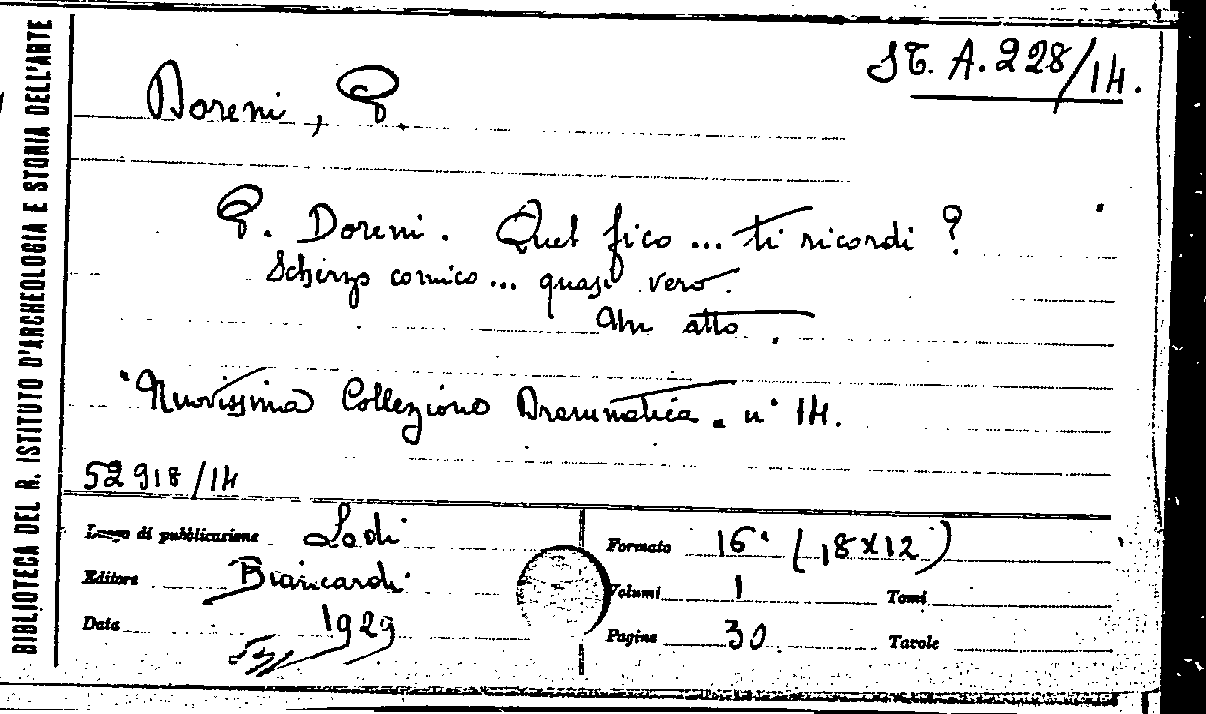 BIBLIOTECA DEL R. ISTITUTO D'ARCHEOLOGIA E STORIA DELL'ARTE
ST. A. 228/14.
Doreni, G.
G. Doreni. Quel fico... ti ricordi?
Scherzo comico... quasi vero.
Un atto.
"Nuovissima Collezione Drammatica. n° 14.
52918/14
Luogo di pubblicazione Lodi
Editore Biancardi
Data 1929
Formato 16° (18x12)
Volumi 1 Tomi
Pagine 30 Tavole